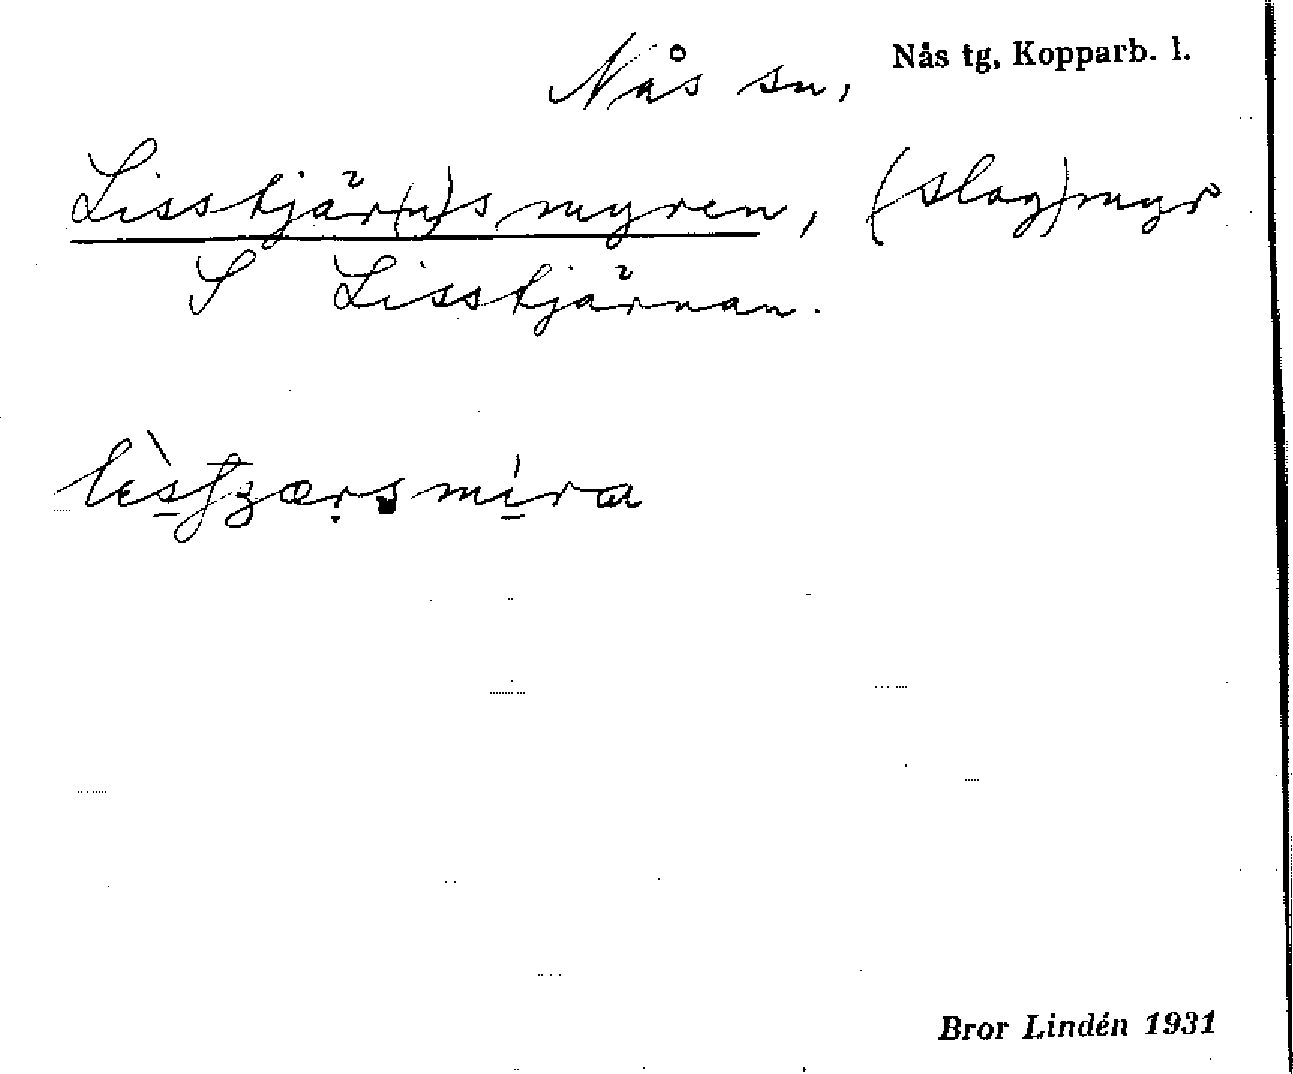 Nås sn, Nås tg, Kopparb. l.
Lisstjär(n)smyren, (slog)myr
S Lisstjärnan.
Bror Lindén 1931